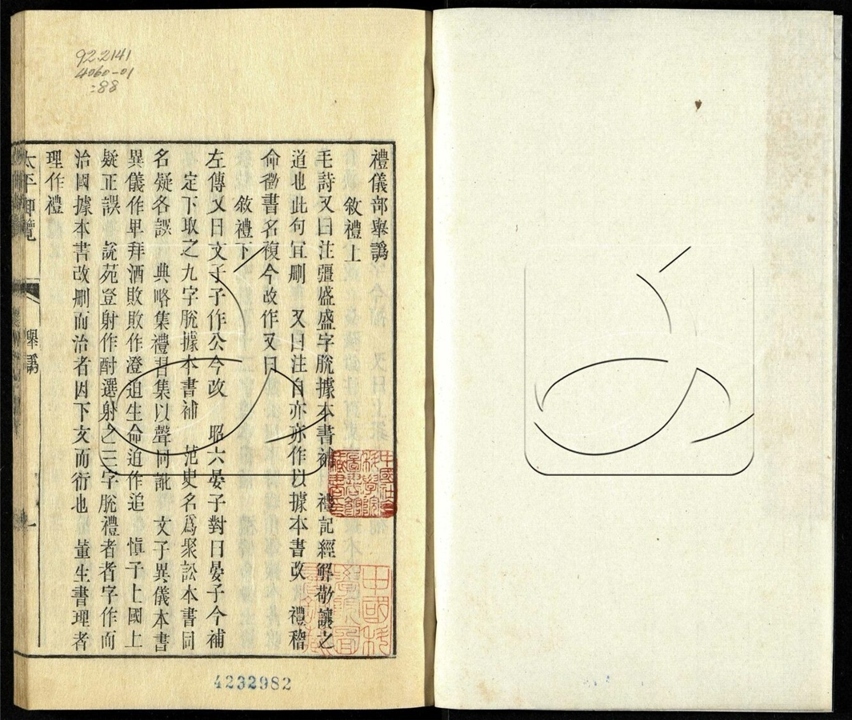 922141
4060-01
:88
禮儀部舉譌
敘禮上
毛詩又曰注彊盛盛字脫據本書補 禮記經解勸讓之
道也此句宜刪 又曰注自亦亦作以據本書改 禮稽
命徵書名複今改作又曰
敘禮下
左傳又曰文子子作公今改 昭六晏子對曰晏子今補
定下取之九字脫據本書補 范史名爲聚訟本書同
名疑各誤 典略集禮君集以聲同訛 文子異儀本書
異儀作卑拜酒敗敗作澄迫生命迫作追 愼子上國上
疑正誤 說苑豆射作酎選射之三字脫禮者者字作而
治國據本書改刪而治者因下文而衍也 董生書理者
理作禮
太平御覽 舉譌 一
4232982